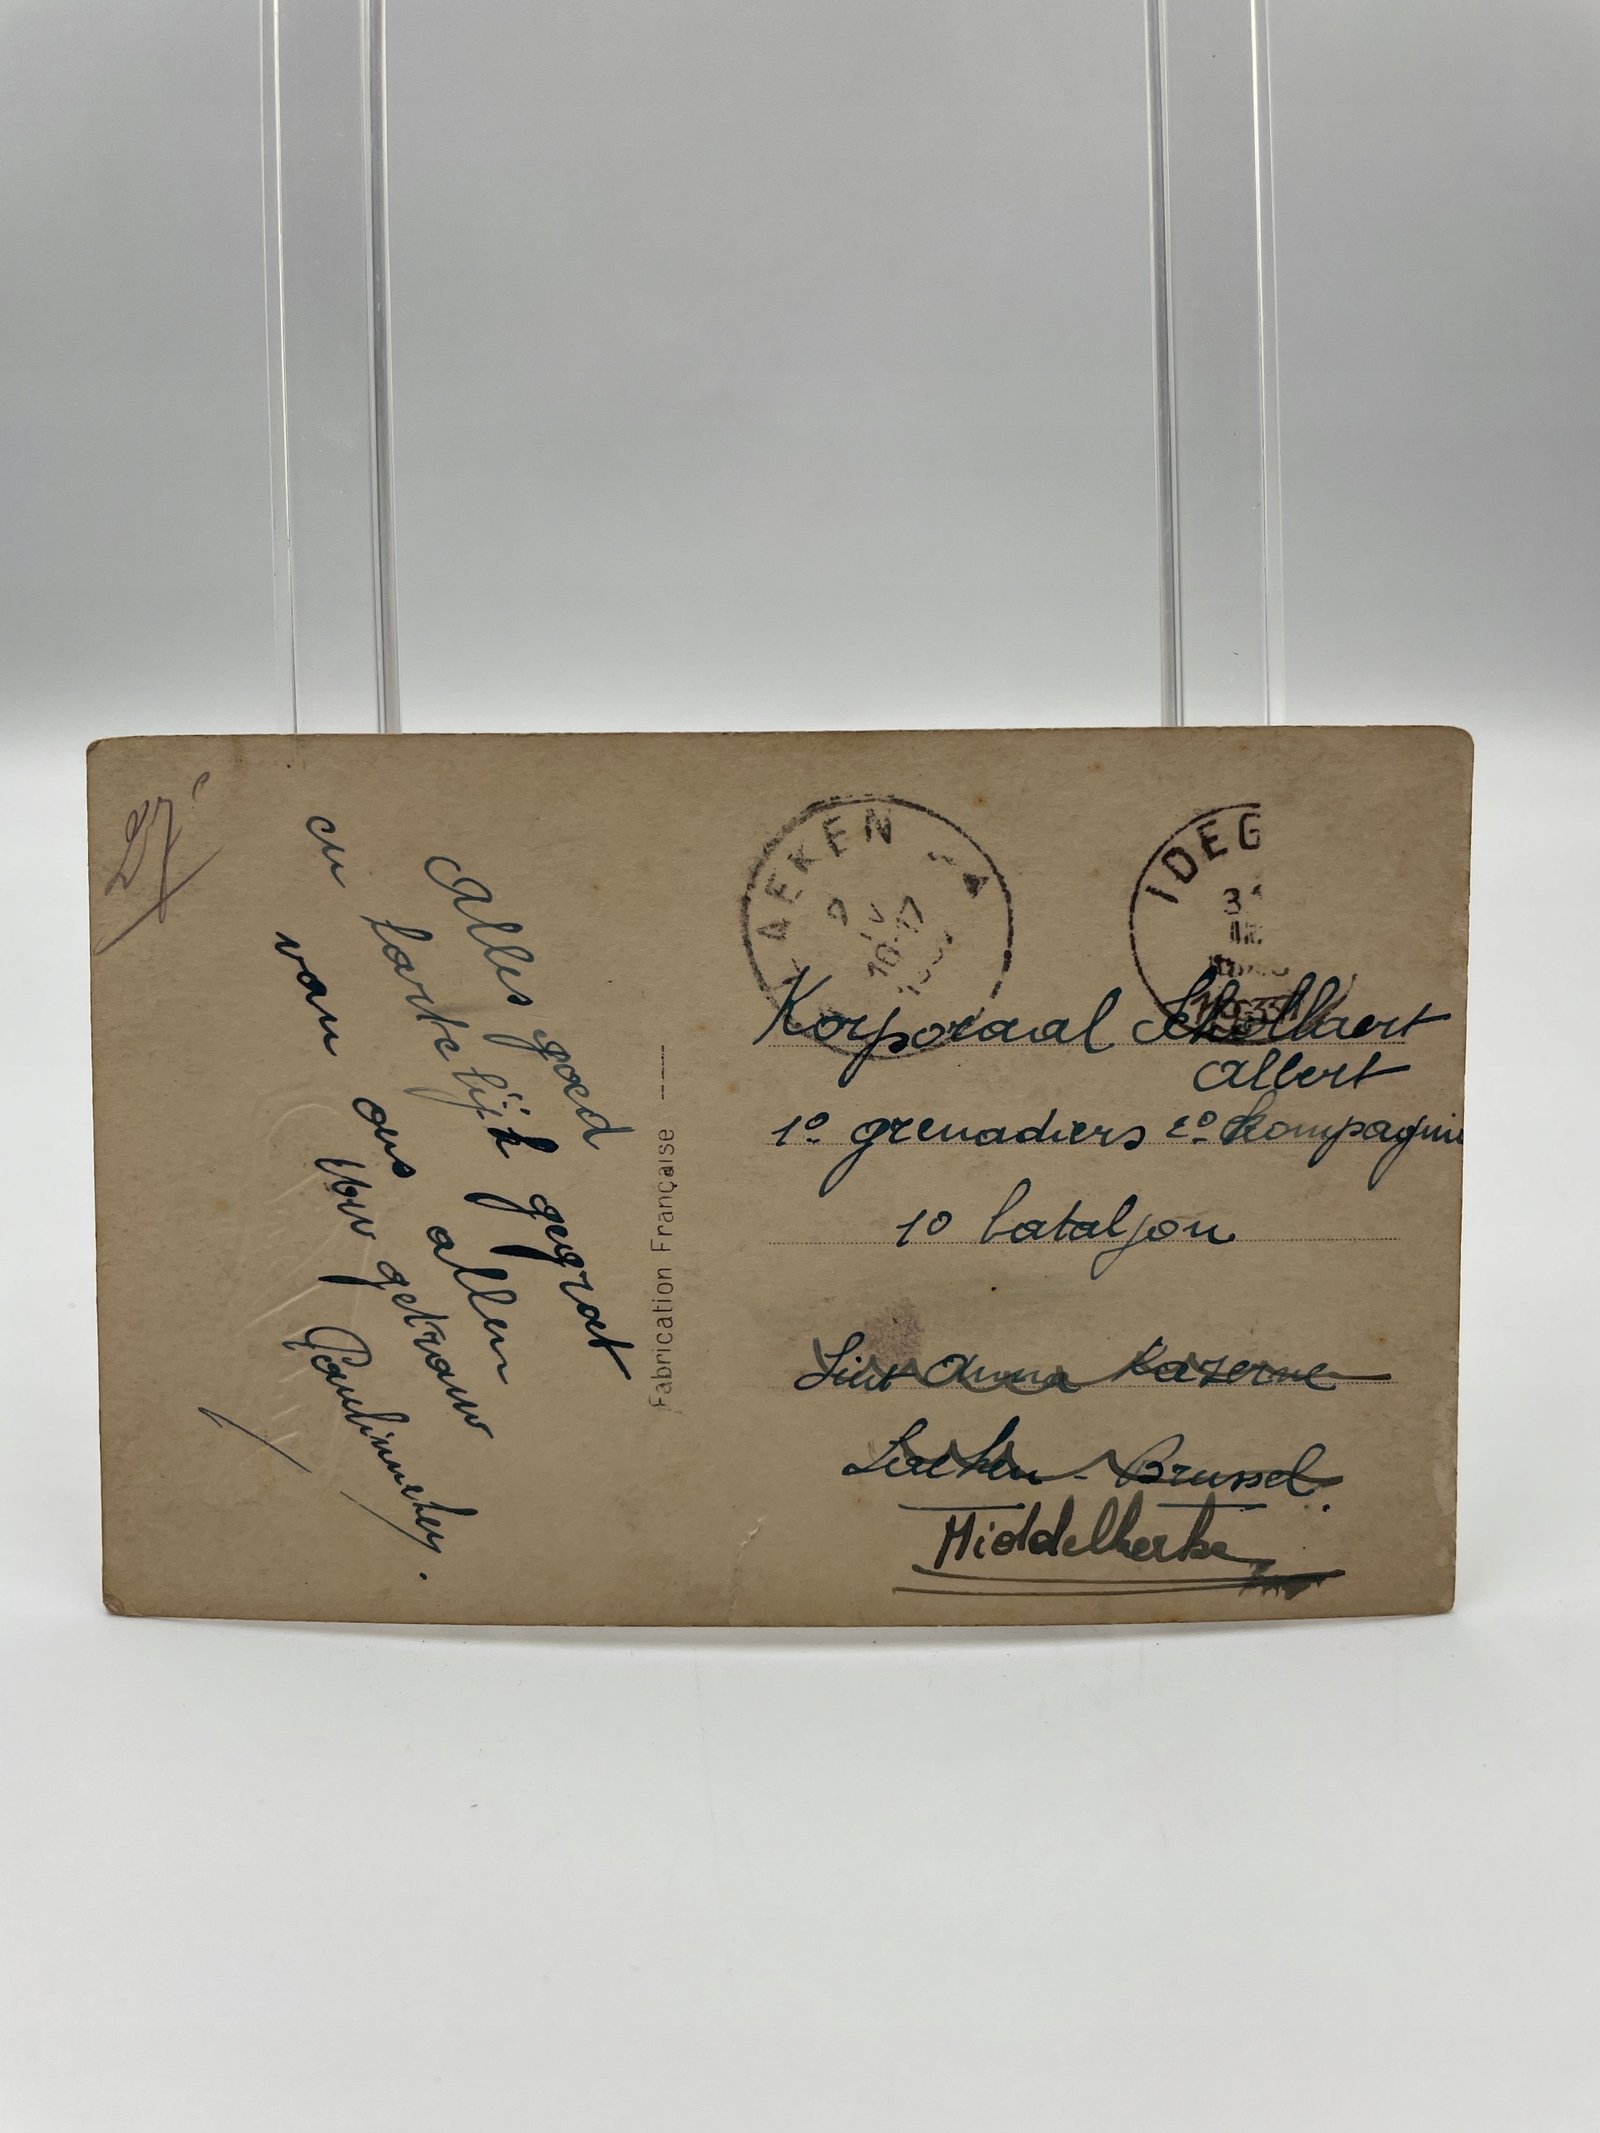 27
Alles goed
en hartelijk gegroet
van ons allen
Uw getrouw
Fabrication Française
LAEKEN
10-17
IDEG
Korporaal Schollaert
Albert
1º grenadiers 2º kompagnie
1º bataljon
Sint Anna Kazerne
Laeken - Brussel.
Middelkerke